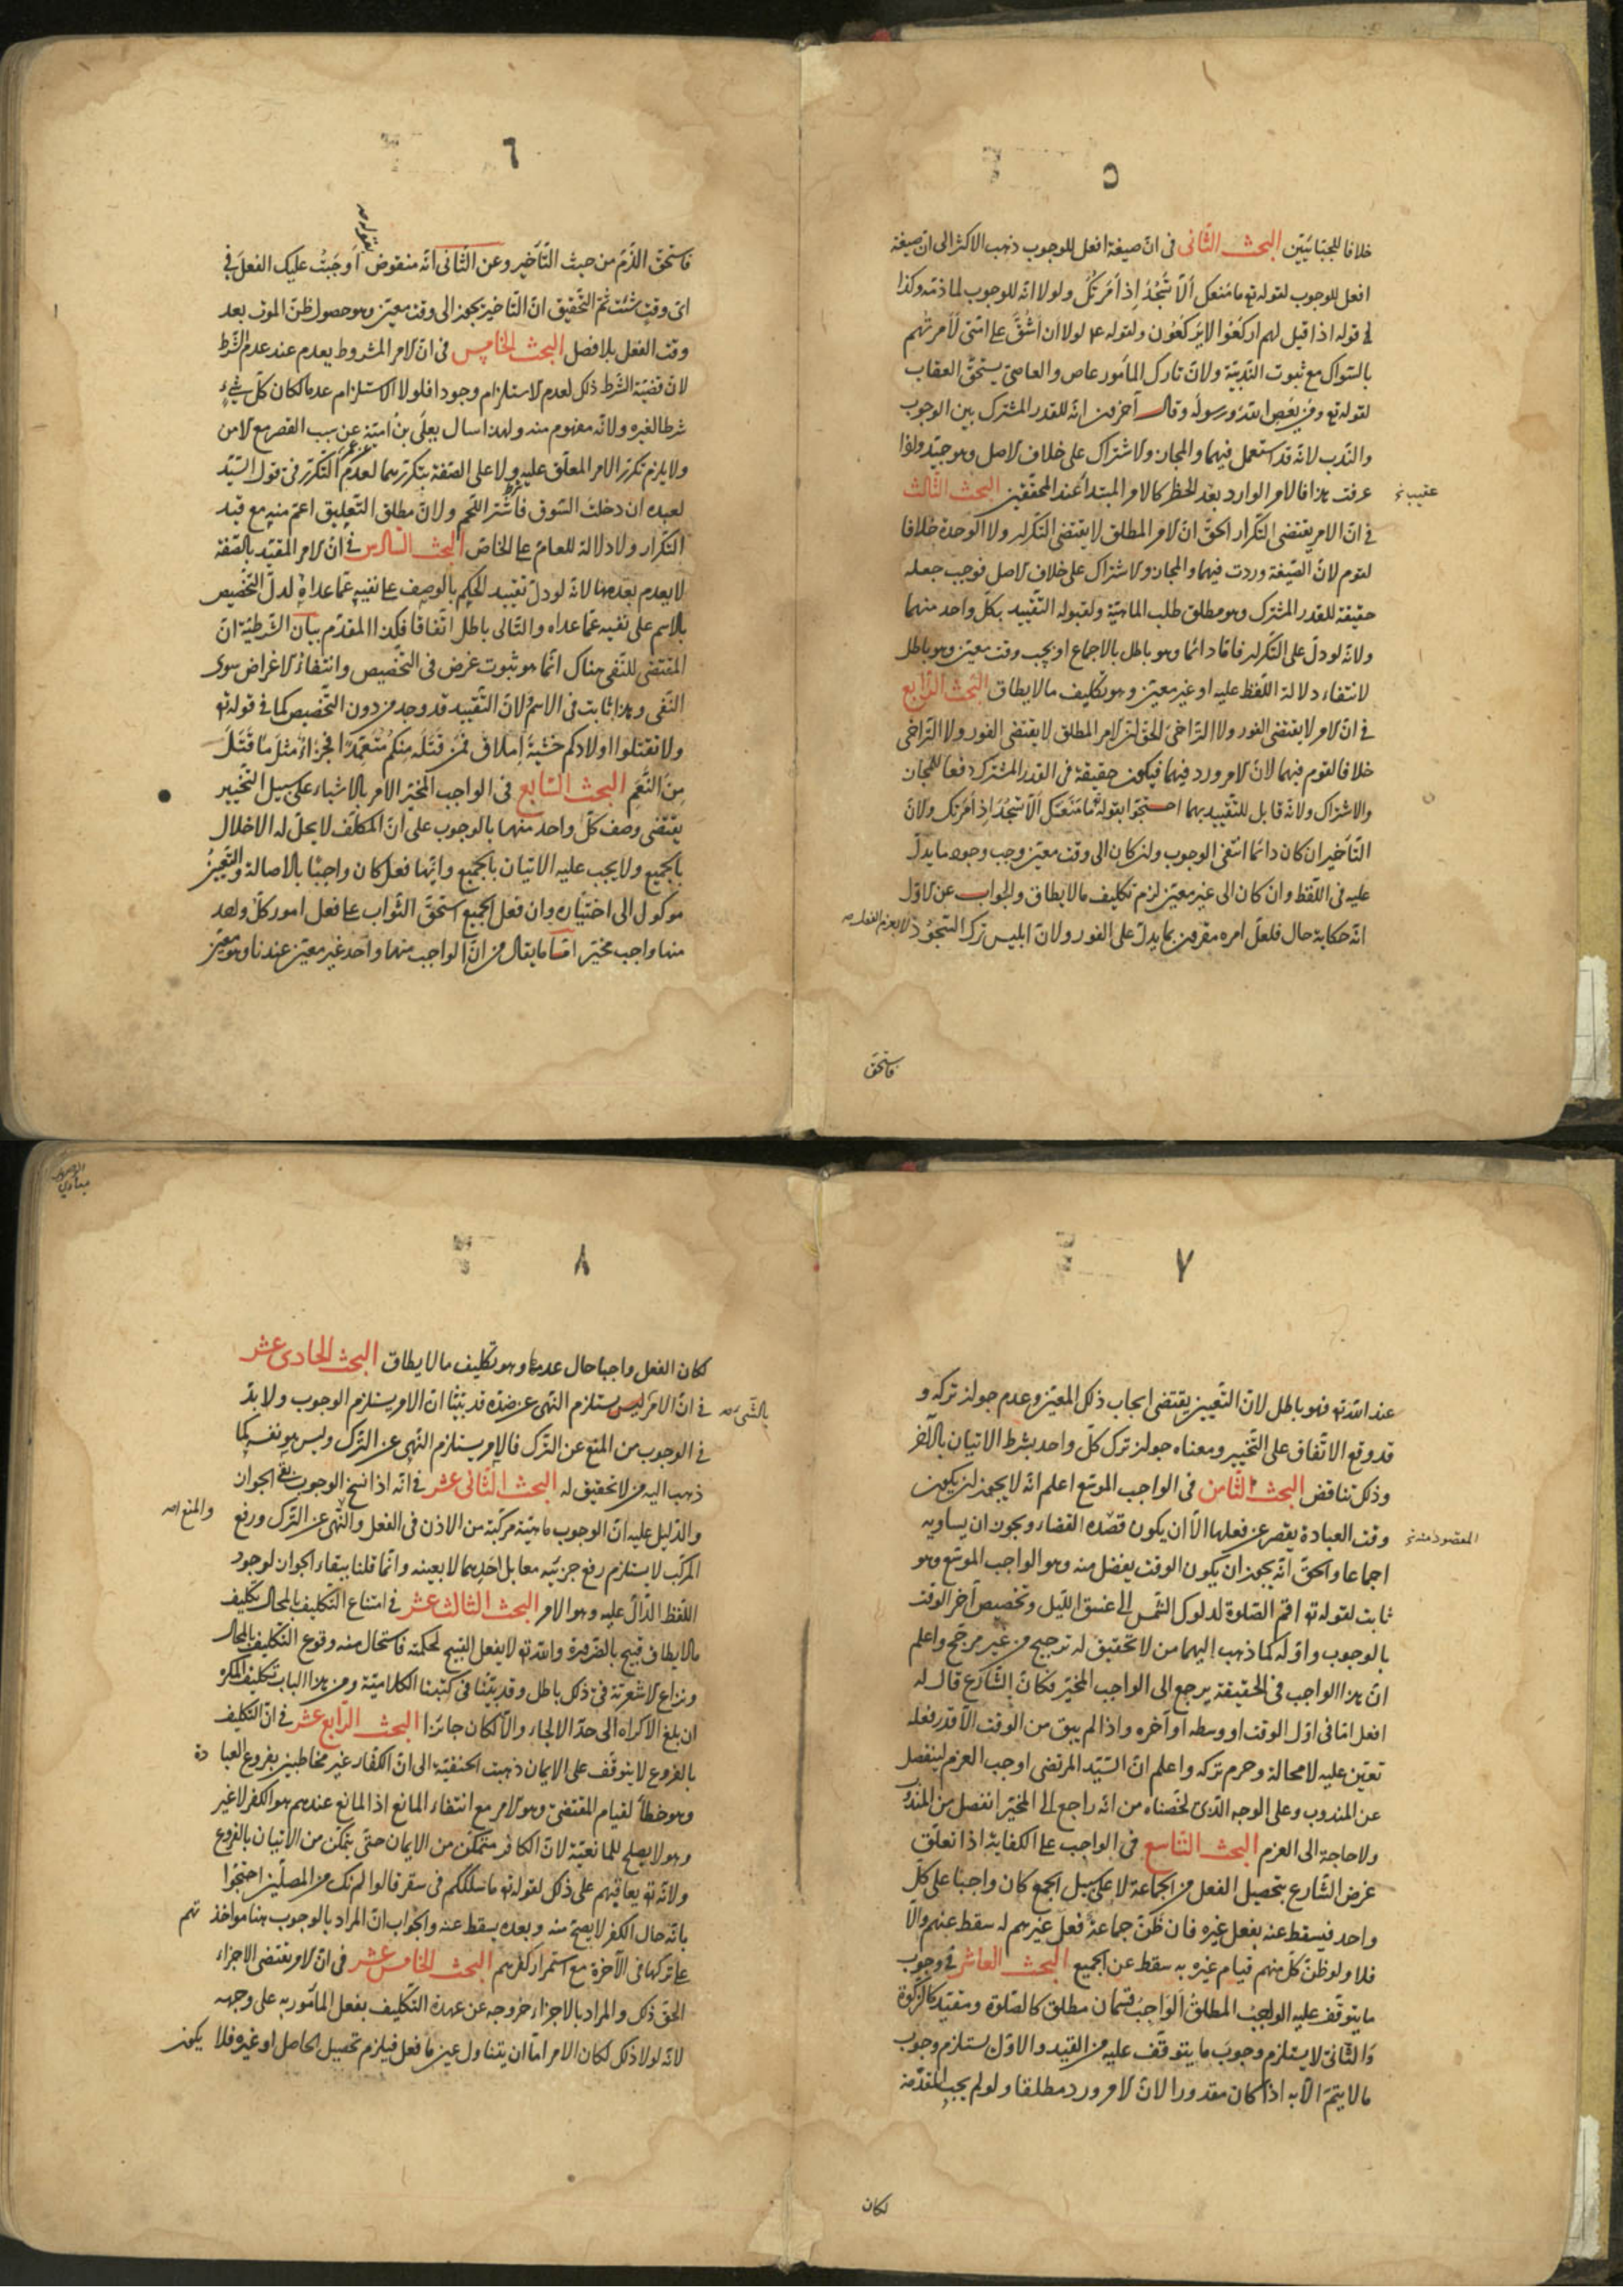 ٥
خلافا للجبائيّين البحث الثّانى فى انّ صيغة افعل للوجوب ذهب الاكثر الى ان صيغة
افعل للوجوب لقوله تع ما منعك ألّا تسجُدَ اِذ أمَرتُكَ ولولا انّه للوجوب لما ذمّه وكذا
فى قوله اذا قيل لهم اركَعُوا لايركَعُون ولقوله ءم لولا ان اَشُقَّ على امّتى لَاَمرتُهم
بالسّواك مع ثبوت النّدبيّة ولانّ تارك المأمور عاص والعاصى يستحقّ العقاب
لقوله تع ومَن يَعصِ اللهَ ورسولَه وقال آخرون انّه للقدر المشترك بين الوجوب
والنّدب لانّه قد استعمل فيهما والمجاز والاشتراك على خلاف الاصل وهو جيّد واذا
عرفت هذا فالامر الوارد بعد الحظر كالامر المبتدأ عند المحقّقين البحث الثّالث
عقيب خ
فى انّ الامر يقتضى التّكرار الحقّ انّ الامر المطلق لا يقتضى التّكرار ولا الوحدة خلافا
لقوم لانّ الصّيغة وردت فيهما والمجاز والاشتراك على خلاف الاصل فوجب جعله
حقيقة للقدر المشترك وهو مطلق طلب الماهيّة ولقبوله التّقييد بكلّ واحد منهما
ولانّه لو دلّ على التّكرار فامّا دائما وهو باطل بالاجماع او بحسب وقت معيّن وهو باطل
لانتفاء دلالة اللّفظ عليه او غير معيّن وهو تكليف مالا يطاق البحث الرّابع
فى انّ الامر لا يقتضى الفور ولا التّراخى الحقّ انّ الامر المطلق لا يقتضى الفور ولا التّراخى
خلافا لقوم فيهما لانّ الامر ورد فيهما فيكون حقيقة فى القدر المشترك دفعا للمجاز
والاشتراك ولانّه قابل للتّقييد بهما احتجّوا بقوله ما مَنَعَكَ اَلّا تسجُدَ اِذ اَمَرتك ولانّ
التّأخير ان كان دائما انتفى الوجوب وان كان الى وقت معيّن وجب وجود ما يدلّ
عليه فى اللّفظ وان كان الى غير معيّن لزم تكليف مالا يطاق والجواب عن الاوّل
انّه حكاية حال فلعلّ امره مقرون بما يدلّ على الفور ولانّ ابليس ترك السّجود لا بعزم الفعل صح
فاستحقّ
٦
فاستحقّ الذّمّ من حيث التّأخير وعن الثّانى انّه منقوض اوجبتُ عليك الفعلَ فى
بقوله صح
اىّ وقتٍ شئت ثمّ التّحقيق انّ التّأخير يجوز الى وقت معيّن وهو حصول ظنّ الموت بعد
وقت الفعل بلا فصل البحث الخامس فى انّ الامر المشروط يعدم عند عدم الشّرط
لانّ قضيّة الشّرط ذلك لعدم الاستلزام وجودا فلولا الاستلزام عدما لكان كلّ شىءٍ
شرطا لغيره ولانّه مفهوم منه ولهذا سال يعلَى بنُ اُميّة عن سبب القصر مع الامن
ولا يلزم تكرّر الامر المعلّق عليه ولا على الصّفة بتكرّرهما لعدم التّكرّر فى قول السّيّد
لعبده ان دخلت السّوق فاشترِ اللّحم ولانّ مطلق التّعليق اعمّ منه مع قيد
التّكرار ولا دلالة للعامّ على الخاصّ البحث السّادس فى انّ الامر المقيّد بالصّفة
لا يعدم بعدمها لانّه لو دلّ تقييد الحكم بالوصف على نفيه عمّا عداه لدلّ التّخصيص
بالاسم على نفيه عمّا عداه والتّالى باطل اتّفاقا فكذا المقدّم بيان الشّرطيّة انّ
المقتضى للنّفى هناك انّما هو ثبوت غرض فى التّخصيص وانتفاءُ الاغراض سوى
النّفى وهذا ثابت فى الاسم ولانّ التّقييد قد وجد من دون التّخصيص كما فى قوله تع
ولا تقتلوا اولادكم خَشيةَ اِملاق فمَن قَتَلَه مِنكُم مُتَعَمِّدًا فجَزاءٌ مثلُ ما قَتَلَ
مِنَ النَّعَمِ البحث السّابع فى الواجب المخيّر الامر بالاشياء على سبيل التّخيير
يقتضى وصف كلّ واحد منهما بالوجوب على انّ المكلّف لا يحلّ له الاخلال
بالجميع ولا يجب عليه الاتيان بالجميع وايّها فعل كان واجبًا بالاصالة والتّعيينُ
موكول الى اختياره وان فعل الجميع استحقّ الثّواب على فعل امور كلّ واحد
منها واجب مخيّر امّا ما يقال من انّ الواجب منهما واحد غير معيّن عندنا وهو معيّن
٧
عند الله تع فهو باطل لانّ التّعيين يقتضى ايجاب ذلك المعيّن وعدم جواز تركه و
قد وقع الاتّفاق على التّخيير ومعناه جواز ترك كلّ واحد بشرط الاتيان بالآخر
وذلك تناقض البحث الثّامن فى الواجب الموسّع اعلم انّه لا يجوز ان يكون
وقت العبادة يقصر عن فعلها الّا ان يكون قصده القضاء ويجوز ان يساويه
المقصود منه خ
اجماعا والحقّ انّه يجوز ان يكون الوقت يفضل منه وهو الواجب الموسّع وهو
ثابت لقوله تع اقم الصّلوة لدلوك الشّمس الى غسق اللّيل وتخصيص آخر الوقت
بالوجوب واوّله كما ذهب اليهما من لا تحقيق له ترجيح من غير مرجّح واعلم
انّ هذا الواجب فى الحقيقة يرجع الى الواجب المخيّر فكانّ الشّارع قال له
افعل امّا فى اوّل الوقت او وسطه او آخره واذا لم يبق من الوقت الّا قدر فعله
تعيّن عليه لا محالة وحرم تركه واعلم انّ السّيّد المرتضى اوجب العزم لينفصل
عن المندوب وعلى الوجه الّذى لخّصناه من انّه راجع الى المخيّر انفصل من المندوب
ولا حاجة الى العزم البحث التّاسع فى الواجب على الكفاية اذا تعلّق
غرض الشّارع بتحصيل الفعل من الجماعة لا على سبيل الجمع كان واجبا على كلّ
واحد فيسقط عنه بفعل غيره فان ظنّ جماعة فعل غيرهم له سقط عنهم والّا
فلا ولو ظنّ كلّ منهم قيام غيره به سقط عن الجميع البحث العاشر فى وجوب
ما يتوقّف عليه الواجب المطلق الواجب قسمان مطلق كالصّلوة ومقيّد كالزّكوة
والثّانى لا يستلزم وجوب ما يتوقّف عليه من القيد والاوّل يستلزم وجوب
ما لا يتمّ الّا به اذا كان مقدورا لانّ الامر ورد مطلقا ولو لم يجب المقدّمة
لكان
٨
لكان الفعل واجبا حال عدمها وهو تكليف مالا يطاق البحث الحادى عشر
فى انّ الامر ليس يستلزم النّهى عن ضدّه قد بيّنّا انّ الامر يستلزم الوجوب ولا بدّ
بالشّىء صح
فى الوجوب من المنع عن التّرك فالامر يستلزم النّهى عن التّرك وليس هو نفسه كما
ذهب اليه من لا تحقيق له البحث الثّانى عشر فى انّه اذا نسخ الوجوب بقى الجواز
والدّليل عليه انّ الوجوب ماهيّة مركّبة من الاذن فى الفعل والنّهى عن التّرك ورفع
والمنع صح
المركّب لا يستلزم رفع جزئيه معا بل احدهما لا بعينه وانّما قلنا ببقاء الجواز لوجود
اللّفظ الدّالّ عليه وهو الامر البحث الثّالث عشر فى امتناع التّكليف بالمحال تكليف
مالا يطاق قبيح بالضّرورة والله تع لا يفعل القبيح لحكمته فاستحال منه وقوع التّكليف بالمحال
ونزاع الاشعريّة فى ذلك باطل وقد بيّنّا فى كتبنا الكلاميّة ومن هذا الباب تكليف المكره
ان بلغ الاكراه الى حدّ الالجاء والّا لكان جائزا البحث الرّابع عشر فى انّ التّكليف
بالفروع لا يتوقّف على الايمان ذهبت الحنفيّة الى انّ الكفّار غير مخاطبين بفروع العبادة
وهو خطأ لقيام المقتضى وهو الامر مع انتفاء المانع اذ المانع عندهم هو الكفر لا غير
وهو لا يصلح للمانعيّة لانّ الكافر متمكّن من الايمان حتّى يتمكّن من الاتيان بالفروع
ولانّه تع يعاقبهم على ذلك لقوله تع ما سلككم فى سقر قالوا لم نك من المصلّين احتجّوا
بانّه حال الكفر لا يصحّ منه وبعده يسقط عنه والجواب انّ المراد بالوجوب هنا مواخذتهم
على تركها فى الآخرة مع استمرار كفرهم البحث الخامس عشر فى انّ الامر يقتضى الاجزاء
الحقّ ذلك والمراد بالاجزاء خروجه عن عهدة التّكليف بفعل المأمور به على وجهه
لانّه لولا ذلك لكان الامر امّا ان يتناول عين ما فعل فيلزم تحصيل الحاصل او غيره فلا يكون